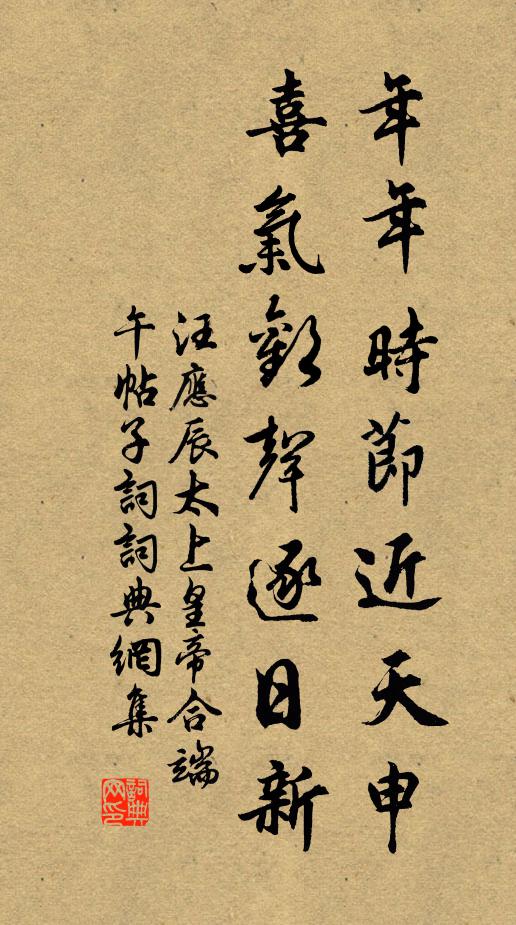 年年時節近天申
喜氣歡聲逐日新
汪應辰太上皇帝合端
午帖子詞詞典網集
詞典
网印